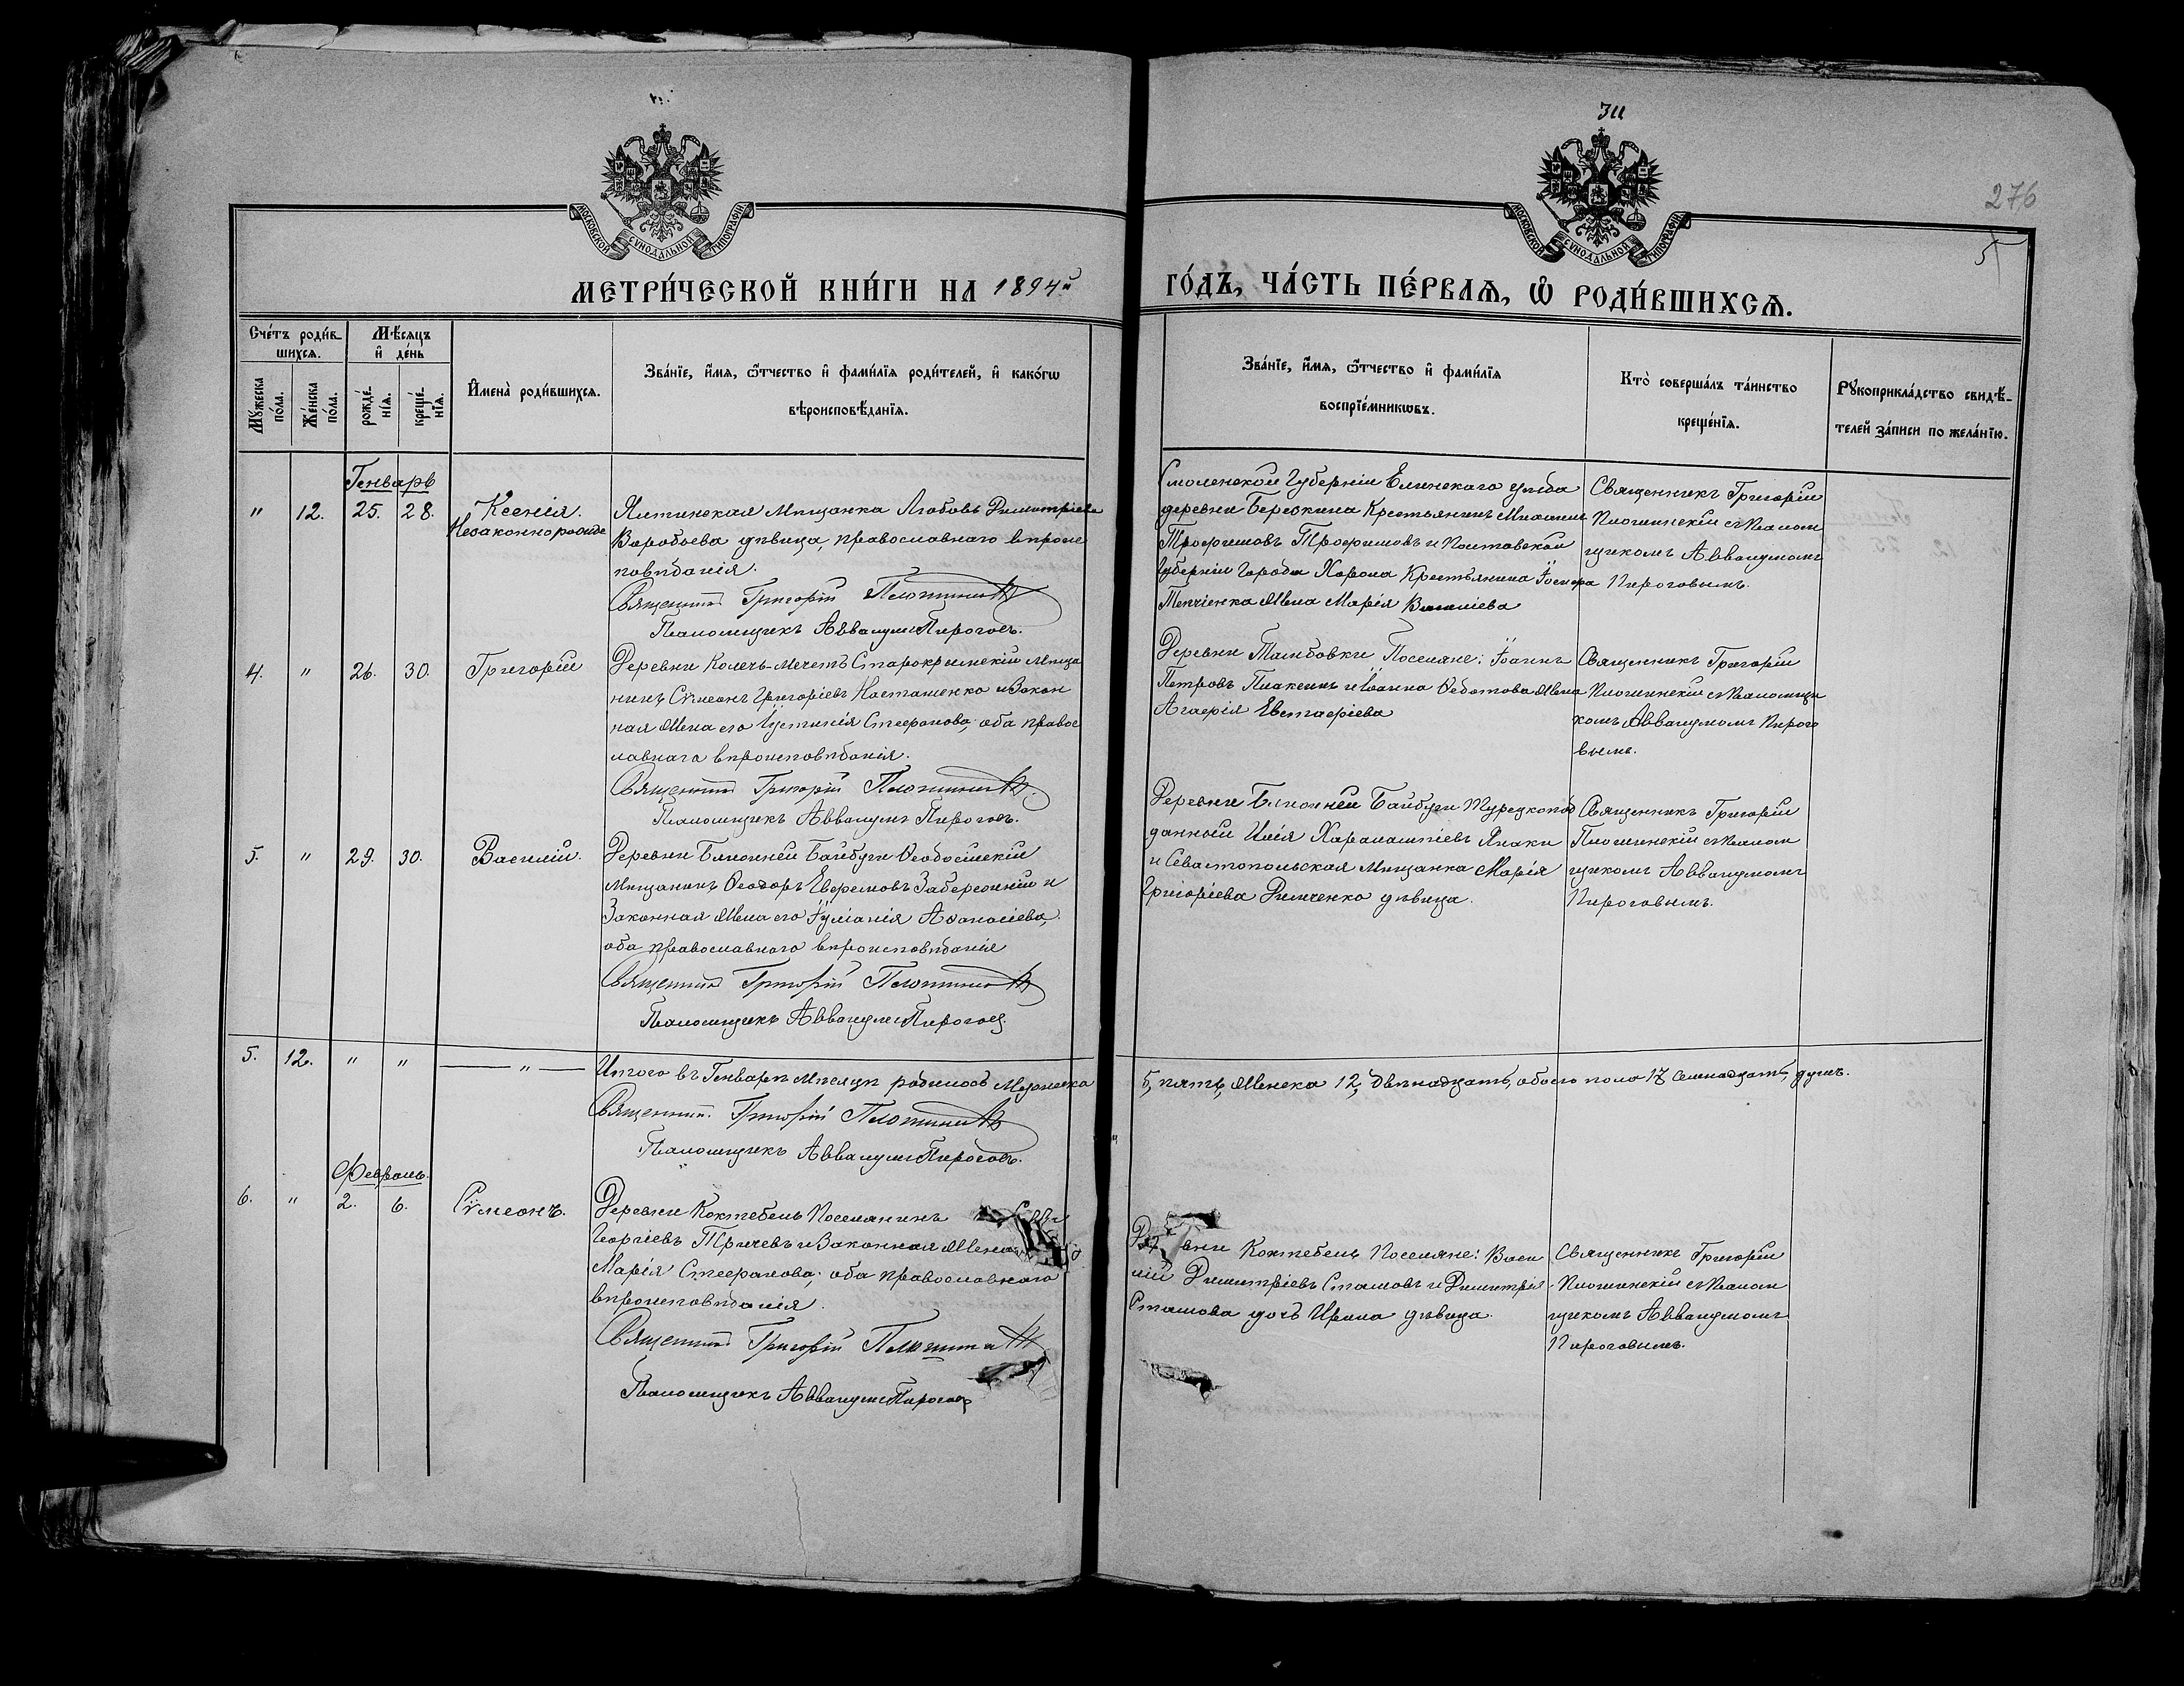 311
276
5
МОСКОВСКОЙ СѴНОДАЛЬНОЙ ТИПОГРАФІИ
МОСКОВСКОЙ СѴНОДАЛЬНОЙ ТИПОГРАФІИ
МЕТРИ́ЧЕСКОЙ КНИ́ГИ НА 1894й
ГО́ДЪ, ЧА́СТЬ ПЕ́РВАѦ, Ѡ҆ РОДИ́ВШИХСѦ.
Сче́тъ роди́в-
шихсѧ.
Мѣ́сѧцъ
и҆ де́нь
Мꙋ́жеска по́ла.
Же́нска по́ла.
рожде́-нїѧ.
креще́-нїѧ.
И҆мена̀ роди́вшихсѧ.
Зва́нїе, и҆́мѧ, ѻ҆́тчество и҆ фами́лїѧ роди́телей, и҆ како́гѡ
вѣроисповѣ́данїѧ.
Зва́нїе, и҆́мѧ, ѻ҆́тчество и҆ фами́лїѧ
воспрїе́мникѡвъ.
Кто̀ соверша́лъ та́инство
креще́нїѧ.
Рꙋкоприкла́дство свидѣ́-
телей за́писи по жела́нїю.
Генварь
" 12. 25. 28. Ксенія.
Незаконнорожде
Ялтинская Мѣщанка Любовь Димитріева
Воробьева дѣвица, православнаго вѣроис
повѣданія.
Священник Григорій
Псаломщикъ Аввакумъ Пироговъ.
Смоленской Губерніи Елинскаго уѣзда
деревни Березкина Крестьянинъ Михаилъ
Трофимовъ Трофимовъ и Полтавской
Губерніи Города Хорола Крестьянина Іосифа
жена Марія Василіева
Священникъ Григорій
съ Псалом
щикомъ Аввакумомъ
Пироговымъ.
4. " 26. 30. Григорій
Деревни Колечь-Мечеть Старокрымскій мѣща
нинъ Сѵмеонъ Григоріевъ Носташенко и Закон
ная жена его Іустинія Стефанова, оба правос
лавнаго вѣроисповѣданія.
Священник Григорій
Псаломщикъ Аввакумъ Пироговъ.
Деревни Тамбовки Поселяне: Іоаннъ
Петровъ Плаксинъ и Іоанна Ѳедотова жена
Агафія Евстафіева
Священникъ Григорій
съ Псаломщи
комъ Аввакумомъ Пирого
вымъ.
5. " 29. 30. Василій.
Деревни Ближней Байбуги Ѳеодосійскій
Мѣщанинъ Ѳеодоръ Ефремовъ и
Законная жена его Іуліанія Аѳанасіева,
оба православнаго вѣроисповѣданія
Священник Григорій
Псаломщикъ Аввакумъ Пироговъ.
Деревни Ближней Байбуги Турецкопод
данный Илія Харалампіевъ Янаки
и Севастопольская Мѣщанка Марія
Григоріева дѣвица.
Священникъ Григорій
съ Псалом
щикомъ Аввакумомъ
Пироговымъ.
5. 12. " " — " —
Итого въ Генварѣ мѣсяцѣ родилось Мужеска
5, пять, Женска 12, двѣнадцать, обоего пола 17 семнадцать, душъ.
Священник Григорій
Псаломщикъ Аввакумъ Пироговъ.
Февраль.
6. " 2. 6. Сѵмеонъ.
Деревни Коктебель Поселянинъ
Георгіевъ и Законная Жена
Марія Стефанова оба православнаго
вѣроисповѣданія.
Священник Григорій
Псаломщикъ Аввакумъ Пироговъ
Деревни Коктебель Поселяне: Васи
лій Димитріевъ Стамовъ и Димитрія
Стамова дочь Ирина дѣвица.
Священникъ Григорій
съ Псалом
щикомъ Аввакумомъ
Пироговымъ.